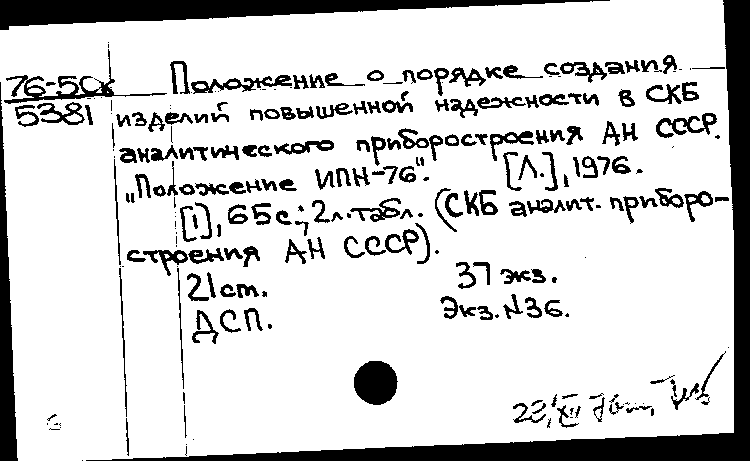 76-50к
5381
Положение о порядке создания
изделий повышенной надежности в СКБ
аналитического приборостроения АН СССР.
„Положение ИПН-76". [Л.], 1976.
[1], 65с.; 2л.табл. (СКБ аналит. приборо-
строения АН СССР).
21 cm. 37 экз.
ДСП. Экз. N36.
22/XII 76